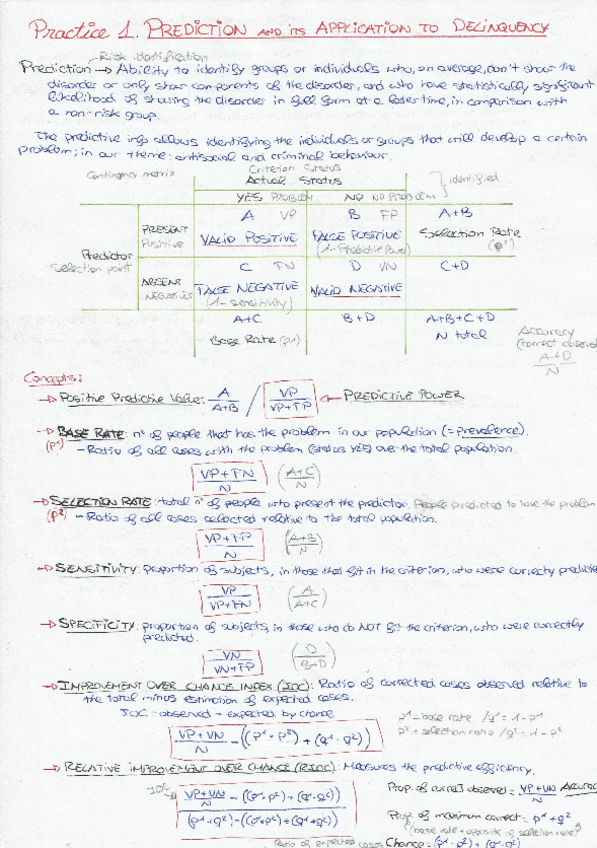 Practice 1. PREDICTION AND ITS APPLICATION TO DELINQUENCY
Risk identification
Prediction → Ability to identify groups or individuals who, on average, don't show the
disorder or only show components of the disorder, and who have statistically significant
likelihood of showing the disorder in full form at a later time, in comparison with
a non-risk group.
The predictive info allows identifying the individuals or groups that will develop a certain
problem; in our theme: antisocial and criminal behaviour.
Contingency matrix
Criterion Status
Actual Status
identified
YES PROBLEM NO NO PROBLEM
A VP B FP A+B
PRESENT
Positive
VALID POSITIVE FALSE POSITIVE Selection Rate
(1-Predictive Power) (p²)
Predictor
Selection point
C FN D VN C+D
ABSENT
NEGATIVES
FALSE NEGATIVE VALID NEGATIVE
(1-sensitivity)
A+C B+D A+B+C+D
Base Rate (p1) N total
Accuracy
(correct observed
A+D
N
Concepts:
→ Positive Predictive Value: A / VP ← PREDICTIVE POWER
A+B VP+FP
→ BASE RATE: nº of people that has the problem in our population (=prevalence).
(p¹) - Ratio of all cases with the problem (status YES) over the total population.
VP+FN (A+C)
N N
→ SELECTION RATE: total nº of people who present the predictor. People predicted to have the problem
(p²) - Ratio of all cases selected relative to the total population.
VP+FP (A+B)
N N
→ SENSITIVITY: proportion of subjects, in those that fit in the criterion, who were correctly predicted
VP (A)
VP+FN (A+C)
→ SPECIFICITY: proportion of subjects, in those who do NOT fit the criterion, who were correctly
predicted.
VN (D)
VN+FP (B+D)
→ IMPROVEMENT OVER CHANCE INDEX (IOC): Ratio of corrected cases observed relative to
the total minus estimation of expected cases.
IOC = observed - expected by chance
p¹ = base rate / q¹ = 1-p¹
p² = selection ratio / q² = 1-p²
VP+VN - ((p¹·p²)+(q¹·q²))
N
→ RELATIVE IMPROVEMENT OVER CHANCE (RIOC): Measures the predictive efficiency.
IOC
VP+VN - ((p¹·p²)+(q¹·q²))
N
(p¹+q²)-((p¹·p²)+(q¹·q²))
Prop. of correct observed = VP+VN Accuracy
N
Prop. of maximum correct = p¹+q²
(base rate + opposite of selection rate)
Ratio of expected cases Chance = (p¹·p²)+(q¹·q²)